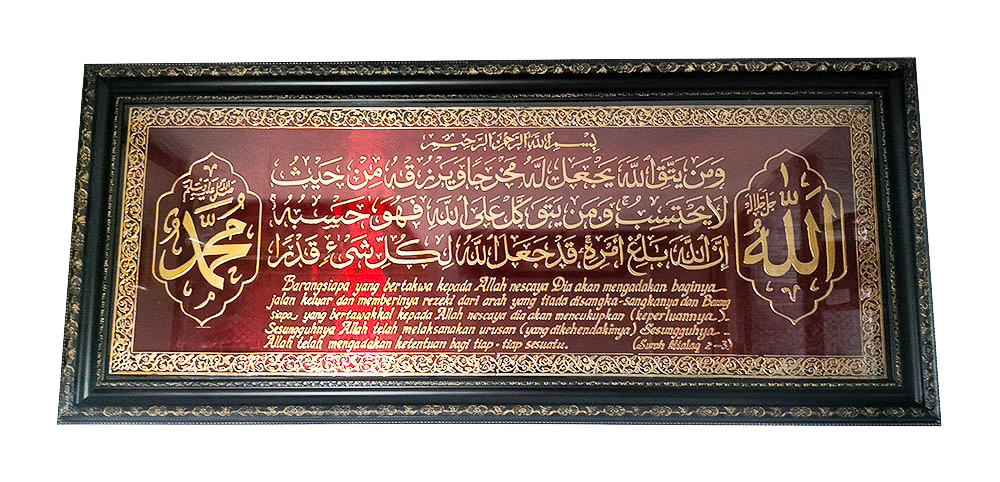 بسم الله الرحمن الرحيم
وَمَن يَتَّقِ اللَّه يَجْعَل لَّهُ مَخْرَجًا وَيَرْزُقْهُ مِنْ حَيْثُ
لَا يَحْتَسِبُ ۚ وَمَن يَتَوَكَّلْ عَلَى اللَّه فَهُوَ حَسْبُهُ
إِنَّ اللَّهَ بَالِغُ أَمْرِهِ ۚ قَدْ جَعَلَ اللَّهُ لِكُلِّ شَيْءٍ قَدْرًا
الله
جل جلاله
محمد
Barangsiapa yang bertakwa kepada Allah nescaya Dia akan mengadakan baginya
jalan keluar dan memberinya rezeki dari arah yang tiada disangka-sangkanya dan Barang
siapa, yang bertawakkal kepada Allah nescaya dia akan mencukupkan (keperluannya).
Sesungguhnya Allah telah melaksanakan urusan (yang dikehendakinya) Sesungguhnya -
Allah telah mengadakan ketentuan bagi tiap-tiap sesuatu. (Surah Attalaq 2-3)